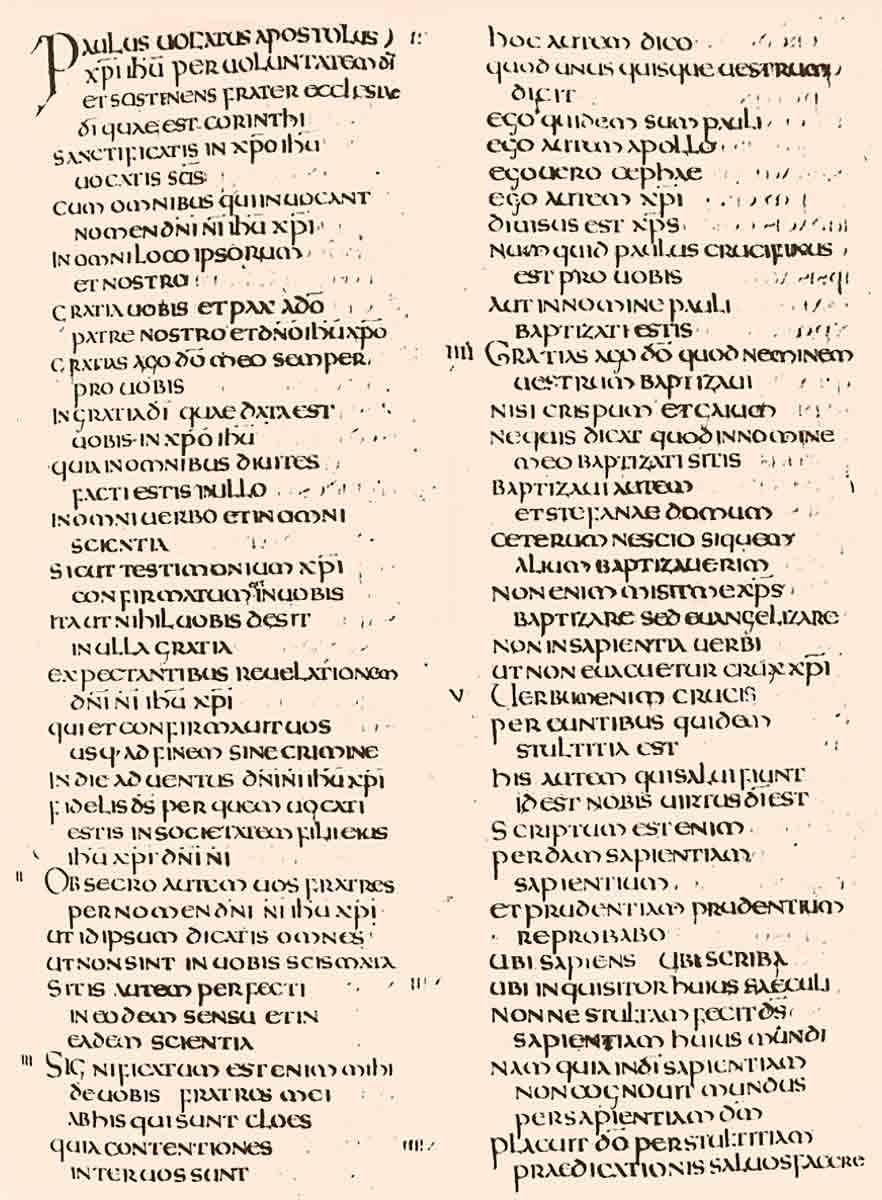 PAULUS UOCATUS APOSTOLUS
XP̄I IHŪ PER UOLUNTATEM DĪ
ET SOSTENENS FRATER ECCLESIAE
DĪ QUAE EST CORINTHI
SANCTIFICATIS IN XP̄O IHŪ
UOCATIS SĀS
CUM OMNIBUS QUI INUOCANT
NOMEN DN̄I N̄I IHŪ XP̄I
IN OMNI LOCO IPSORUM
ET NOSTRO
GRATIA UOBIS ET PAX A DŌ
PATRE NOSTRO ET DN̄O IHŪ XP̄O
GRATIAS AGO DŌ MEO SEMPER
PRO UOBIS
IN GRATIA DĪ QUAE DATA EST
UOBIS IN XP̄O IHŪ
QUIA IN OMNIBUS DIUITES
FACTI ESTIS IN ILLO
IN OMNI UERBO ET IN OMNI
SCIENTIA
SICUT TESTIMONIUM XP̄I
CONFIRMATUM EST IN UOBIS
ITA UT NIHIL UOBIS DESIT
IN ULLA GRATIA
EXPECTANTIBUS REUELATIONEM
DN̄I N̄I IHŪ XP̄I
QUI ET CONFIRMAUIT UOS
USQ· AD FINEM SINE CRIMINE
IN DIE ADUENTUS DN̄I N̄I IHŪ XP̄I
FIDELIS D̄S PER QUEM UOCATI
ESTIS IN SOCIETATEM FILII EIUS
IHŪ XP̄I DN̄I N̄I
II OBSECRO AUTEM UOS FRATRES
PER NOMEN DN̄I N̄I IHŪ XP̄I
UT IDIPSUM DICATIS OMNES
UT NON SINT IN UOBIS SCISMATA
SITIS AUTEM PERFECTI
IN EODEM SENSU ET IN
EADEM SCIENTIA
III SIGNIFICATUM EST ENIM MIHI
DE UOBIS FRATRES MEI
AB HIS QUI SUNT CLOES
QUIA CONTENTIONES
INTER UOS SUNT
HOC AUTEM DICO
QUOD UNUS QUISQUE UESTRUM
DICIT
EGO QUIDEM SUM PAULI
EGO AUTEM APOLLO
EGO UERO CEPHAE
EGO AUTEM XP̄I
DIUISUS EST XP̄S
NUMQUID PAULUS CRUCIFIXUS
EST PRO UOBIS
AUT IN NOMINE PAULI
BAPTIZATI ESTIS
IIII GRATIAS AGO DŌ QUOD NEMINEM
UESTRUM BAPTIZAUI
NISI CRISPUM ET GAIUM
NE QUIS DICAT QUOD IN NOMINE
MEO BAPTIZATI SITIS
BAPTIZAUI AUTEM
ET STEFANAE DOMUM
CETERUM NESCIO SI QUEM
ALIUM BAPTIZAUERIM
NON ENIM MISIT ME XP̄S
BAPTIZARE SED EUANGELIZARE
NON IN SAPIENTIA UERBI
UT NON EUACUETUR CRUX XP̄I
V UERBUM ENIM CRUCIS
PEREUNTIBUS QUIDEM
STULTITIA EST
HIS AUTEM QUI SALUI FIUNT
ID EST NOBIS UIRTUS DĪ EST
SCRIPTUM EST ENIM
PERDAM SAPIENTIAM
SAPIENTIUM
ET PRUDENTIAM PRUDENTIUM
REPROBABO
UBI SAPIENS UBI SCRIBA
UBI INQUISITOR HUIUS SAECULI
NONNE STULTAM FECIT D̄S
SAPIENTIAM HUIUS MUNDI
NAM QUIA IN DĪ SAPIENTIAM
NON COGNOUIT MUNDUS
PER SAPIENTIAM DM̄
PLACUIT DŌ PER STULTITIAM
PRAEDICATIONIS SALUOS FACERE